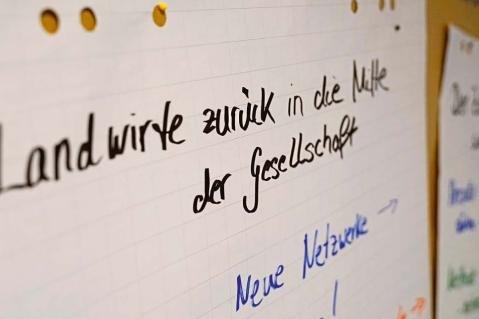 Landwirte zurück in die Mitte
der Gesellschaft
Neue Netzwerke →
Der